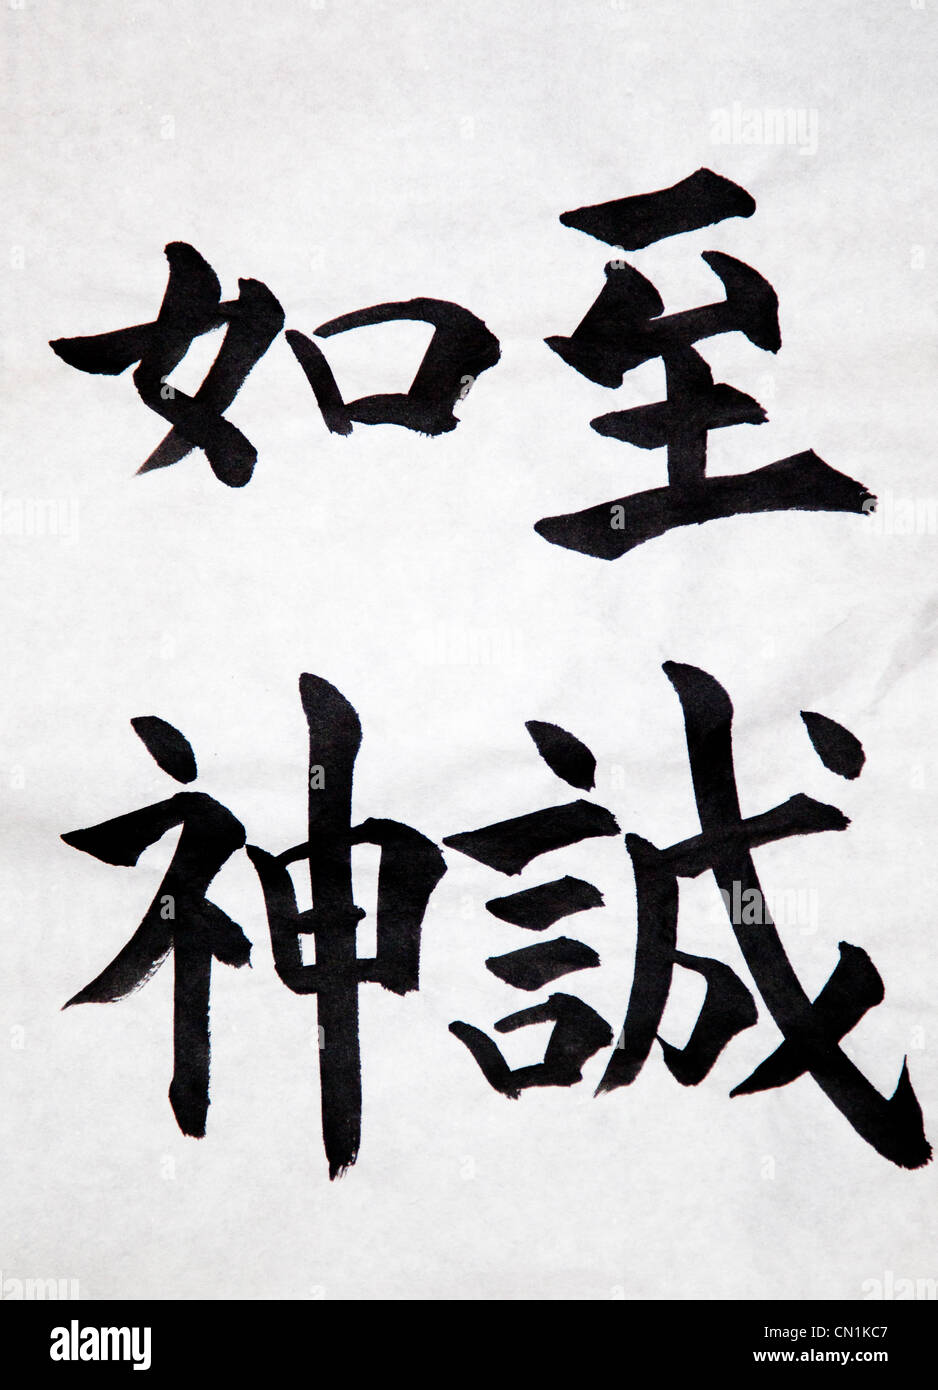 至誠
如神
alamy
Image ID: CN1KC7
www.alamy.com